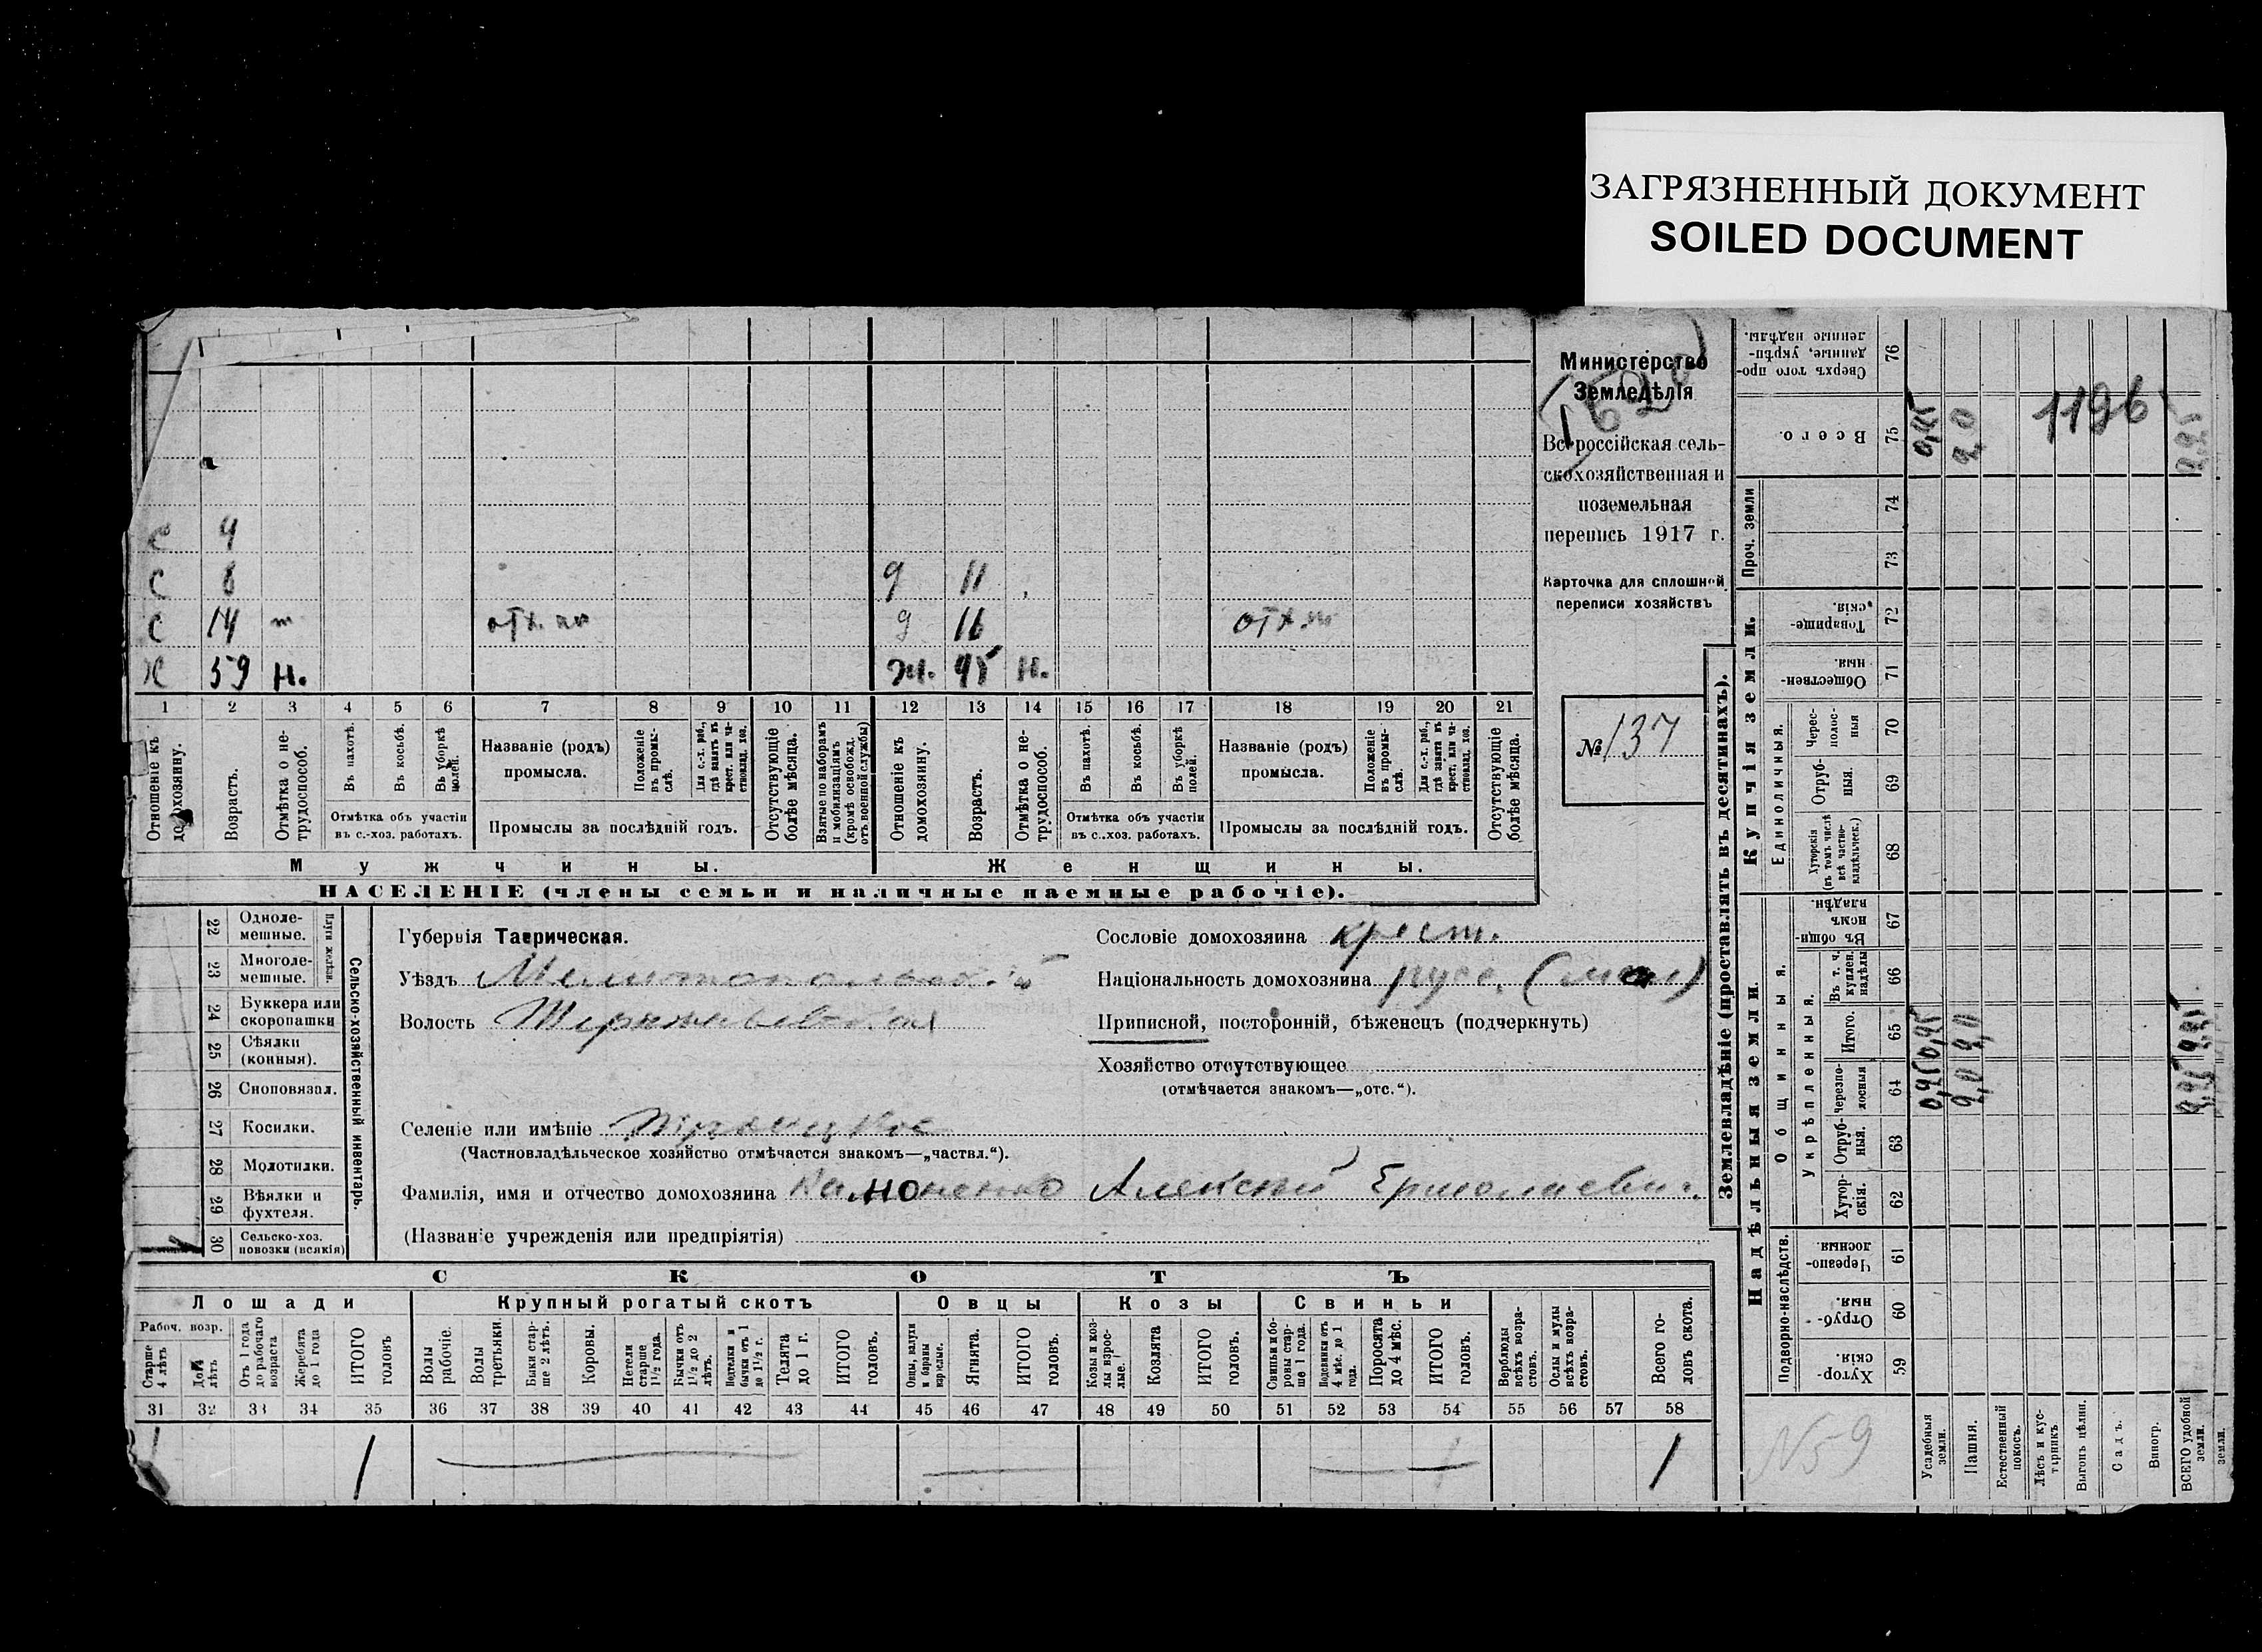 ЗАГРЯЗНЕННЫЙ ДОКУМЕНТ
SOILED DOCUMENT
Министерство
Земледѣлія
Всероссійская сель-
скохозяйственная и
поземельная
перепись 1917 г.
Карточка для сплошной
переписи хозяйствъ
№ 137
с 4
с 8 д 11
с 14 д 16
х 59 н. ж. 45 н.
1 2 3 4 5 6 7 8 9 10 11 12 13 14 15 16 17 18 19 20 21
Отношеніе къ домохозяину.
Возрастъ.
Отмѣтка о не-трудоспособ.
Въ пахотѣ.
Въ косьбѣ.
Въ уборкѣ полей.
Отмѣтка объ участіи
въ с.-хоз. работахъ.
Названіе (родъ)
промысла.
Положеніе въ промы-слѣ.
Для с.-х. раб., гдѣ занятъ въ крест. или ча-стновлад. хоз.
Промыслы за послѣдній годъ.
Отсутствующіе болѣе мѣсяца.
Взятые по наборамъ и мобилизаціямъ (кромѣ освобожд. отъ военной службы)
Отношеніе къ домохозяину.
Возрастъ.
Отмѣтка о не-трудоспособ.
Въ пахотѣ.
Въ косьбѣ.
Въ уборкѣ полей.
Отмѣтка объ участіи
въ с.-хоз. работахъ.
Названіе (родъ)
промысла.
Положеніе въ промы-слѣ.
Для с.-х. раб., гдѣ занята въ крест. или ча-стновлад. хоз.
Промыслы за послѣдній годъ.
Отсутствующіе болѣе мѣсяца.
Мужчины. Женщины.
НАСЕЛЕНІЕ (члены семьи и наличные наемные рабочіе).
Сельско-хозяйственный инвентарь.
22 Одноле-мешные.
23 Многоле-мешные.
24 Буккера или скоропашки
25 Сѣялки (конныя).
26 Сноповязал.
27 Косилки.
28 Молотилки.
29 Вѣялки и фухтеля.
30 Сельско-хоз. повозки (всякія)
Губернія Таврическая.
Уѣздъ Мелитопольск.ій
Волость
Селеніе или имѣніе Троицкое
(Частновладѣльческое хозяйство отмѣчается знакомъ—„частвл.“).
Фамилія, имя и отчество домохозяина Алексѣй Ермолаевич
(Названіе учрежденія или предпріятія)
Сословіе домохозяина крест.
Національность домохозяина русс. (мал)
Приписной, посторонній, бѣженец (подчеркнуть)
Хозяйство отсутствующее
(отмѣчается знакомъ—„отс.“).
СКОТЪ
Лошади Крупный рогатый скотъ Овцы Козы Свиньи
Рабоч. возр.
Старше 4 лѣтъ
До 4 лѣтъ
Отъ 1 года до рабочаго возраста
Жеребята до 1 года
ИТОГО головъ
Волы рабочіе.
Волы третьяки.
Быки стар-ше 2 лѣтъ.
Коровы.
Нетели старше 1½ года.
Бычки отъ 1½ до 2 лѣтъ.
Нетелки и бычки отъ 1 до 1½ г.
Телята до 1 г.
ИТОГО головъ.
Овцы, валухи и бараны взрослые.
Ягнята.
ИТОГО головъ.
Козы и коз-лы взрос-лые.
Козлята
ИТОГО головъ.
Свиньи и бо-ровы стар-ше 1 года.
Подсвинки отъ 4 мѣс. до 1 года.
Поросята до 4 мѣс.
ИТОГО головъ.
Верблюды всѣхъ возра-стовъ.
Ослы и мулы всѣхъ возра-стовъ.
Всего го-ловъ скота.
31 32 33 34 35 36 37 38 39 40 41 42 43 44 45 46 47 48 49 50 51 52 53 54 55 56 57 58
1 1 1
Землевладѣніе (проставлять въ десятинахъ).
Надѣльныя земли.
Купчія земли.
Проч. земли
Подворно-наслѣдств.
Общинныя.
Укрѣпленныя.
Единоличныя.
Хутор-скія 59
Отруб-ныя. 60
Черезпо-лосныя. 61
Хутор-скія. 62
Отруб-ныя. 63
черезпо-лосныя 64
Итого. 65
Въ т. ч. куплен. надѣлы 66
Въ общин-номъ владѣн. 67
Хуторскія (въ томъ числѣ всѣ частно-владѣльческ.) 68
Отруб-ныя. 69
Черес-полос-ныя 70
Обществен-ныя. 71
Товарище-скія. 72
73
74
Всего. 75
Сверхъ того про-данные, укрѣп-ленные надѣлы. 76
Усадебныя земли.
Пашня.
Естественный покосъ.
Лѣсъ и кус-тарникъ
Выгонъ цѣлин.
Садъ.
Виногр.
ВСЕГО удобной земли.
1196
N59